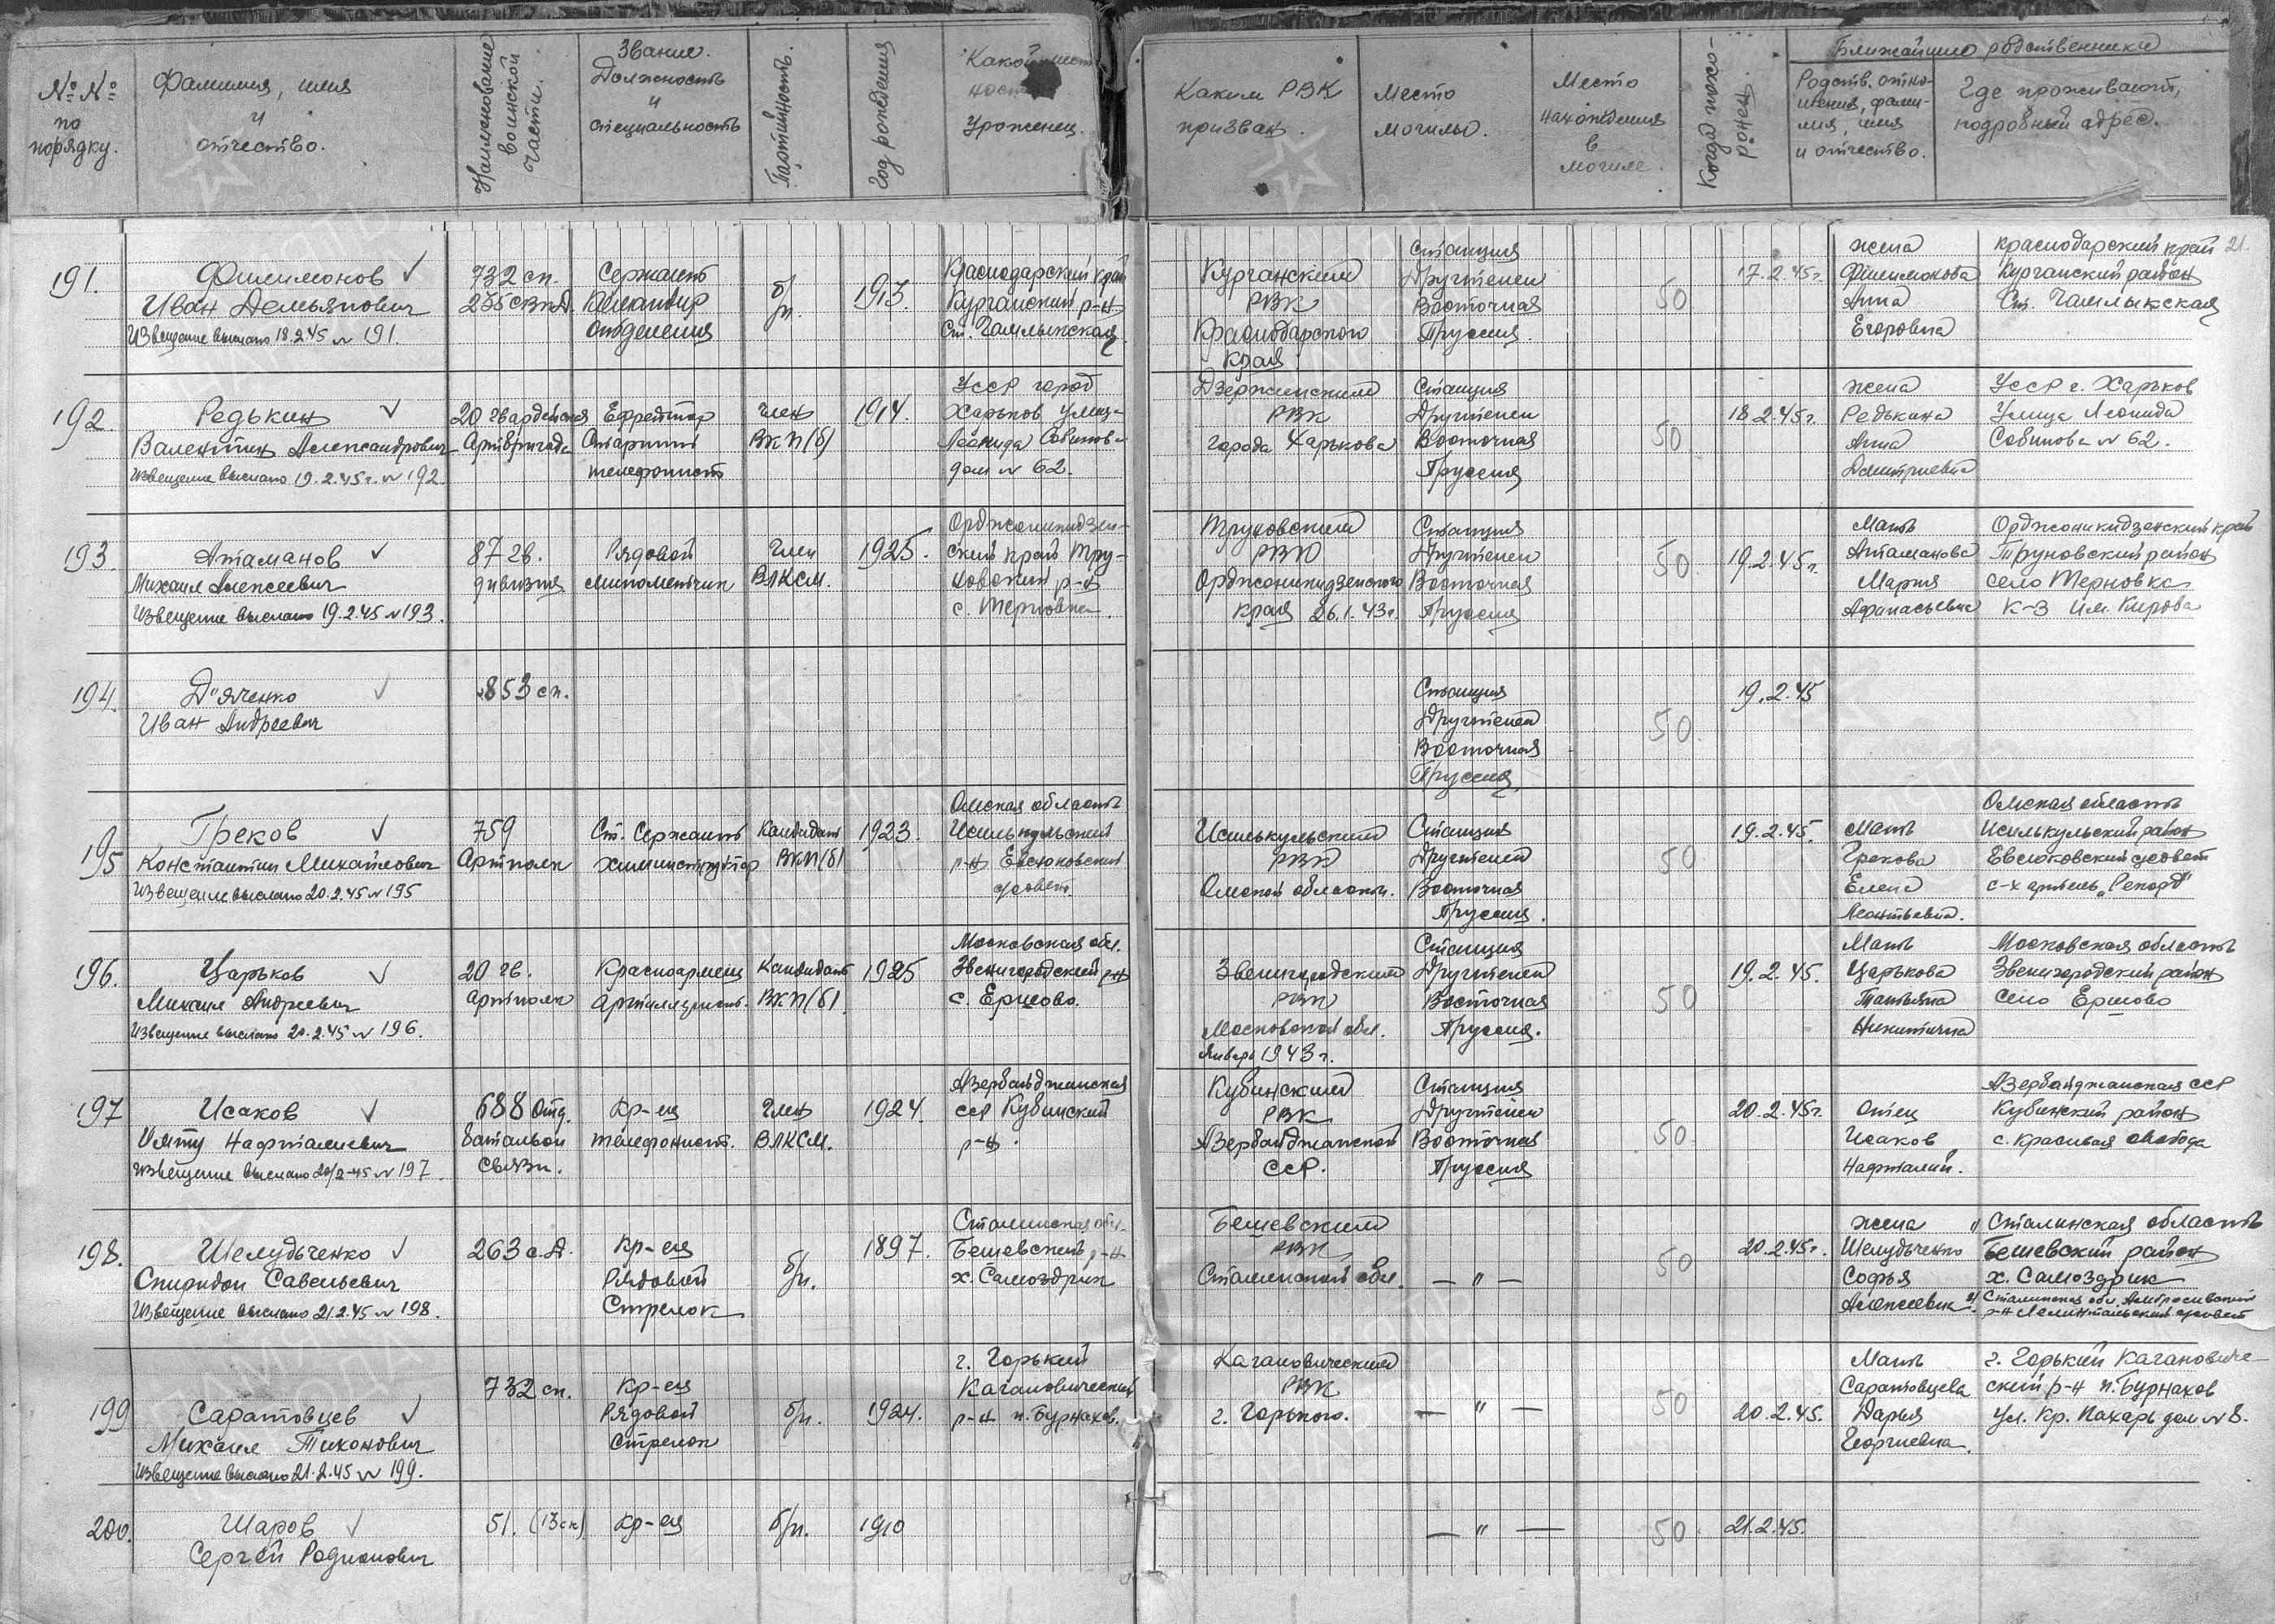 № № по порядку.
Фамилия, имя и отчество.
Наименование воинской части.
Звание. Должность и специальность
Партийность.
Год рождения
Какой местности Уроженец.
Каким РВК призван.
Место могилы.
Место нахождения в могиле.
Когда похоронен.
Ближайшие родственники
Родств. отношения, фамилия, имя и отчество.
Где проживают, подробный адрес.
21.
191. Филимонов Иван Демьянович
Извещение выслано 18.2.45 № 191.
732 сп. 235 свд
Сержант Командир отделения
б/п.
1913.
Краснодарский край Курганский р-н Ст. Чамлыкская
Курганским РВК Краснодарского Края
Станция Другтенен Восточная Пруссия.
50
17.2.45г.
жена Филимонова Анна Егоровна
Краснодарский край Курганский район Ст. Чамлыкская
192. Редькин Валентин Александрович
Извещение выслано 19.2.45г. № 192
20 гвардейская Артбригада
Ефрейтор Старший телефонист
член ВКП(б)
1914.
УССР город Харьков улица Леонида Собинова дом № 62.
Дзержинским РВК города Харькова
Станция Другтенен Восточная Пруссия
50
18.2.45г.
жена Редькина Анна Дмитриевна
УССР г. Харьков Улица Леонида Собинова № 62.
193. Атаманов Михаил Алексеевич
Извещение выслано 19.2.45 № 193.
87 гв. дивизия
Рядовой минометчик
Член ВЛКСМ.
1925.
Орджоникидзенский край Труновский р-н с. Терновка
Труновским РВК Орджоникидзенского края 26.1.43г.
Станция Другтенен Восточная Пруссия
50
19.2.45г.
Мать Атаманова Мария Афанасьевна
Орджоникидзенский край Труновский район село Терновка К-З им. Кирова
194. Д"яченко Иван Андреевич
853 сп.
Станция Другтенен Восточная Пруссия
50
19.2.45
195 Греков Константин Михайлович
Извещение выслано 20.2.45 № 195
759 Артполк
Ст. Сержант химинструктор
Кандидат ВКП(б)
1923.
Омская область Исилькульский р-н Евсюковский совет.
Исилькульским РВК Омской области.
Станция Другтенен Восточная Пруссия.
50
19.2.45.
Мать Грекова Елена Леонтьевна.
Омская область Исилькульский район Евсюковский совет с-х артель "Рекорд"
196. Царьков Михаил Андреевич
Извещение выслано 20.2.45 № 196.
20 гв. артполк
Красноармеец Артиллерист.
Кандидат ВКП(б)
1925
Московская обл. Звенигородский р-н с. Ершово.
Звенигородским РВК Московской обл. Январь 1943г.
Станция Другтенен Восточная Пруссия.
50
19.2.45.
Мать Царькова Татьяна Никитична
Московская область Звенигородский район село Ершово
197 Исаков Нафталиевич
Извещение выслано 20/2-45 № 197
688 Отд. батальон связи.
Кр-ец телефонист.
Член ВЛКСМ.
1924
Азербайджанская ССР Кубинский р-н.
Кубинским РВК Азербайджанской ССР.
Станция Другтенен Восточная Пруссия
50
20.2.45г.
Отец Исаков Нафталий.
Азербайджанская ССР Кубинский район с. Красивая слобода
198. Шелудьченко Спиридон Савельевич
Извещение выслано 21.2.45 № 198.
263 с.д.
Кр-ец Рядовой Стрелок
б/п.
1897.
Сталинская обл. Бешевский р-н х. Самоздрик
Бешевским РВК Сталинской обл.
— " —
50
20.2.45г.
жена Шелудьченко Софья Алексеевна
" Сталинская область Бешевский район х. Самоздрик
2) Сталинская обл. Амвросиевский р-н совет
199 Саратовцев Михаил Тихонович
Извещение выслано 21.2.45 № 199.
732 сп.
Кр-ец Рядовой Стрелок
б/п.
1924.
г. Горький Кагановический р-н п. Бурнахов.
Кагановическим РВК г. Горького.
— " —
50
20.2.45.
Мать Саратовцева Дарья Георгиевна.
г. Горький Кагановический р-н п. Бурнахов ул. Кр. Пахарь дом № 8.
200. Шаров Сергей Родионович
51. (13 ск)
Кр-ец
б/п.
1910
— " —
50
21.2.45.